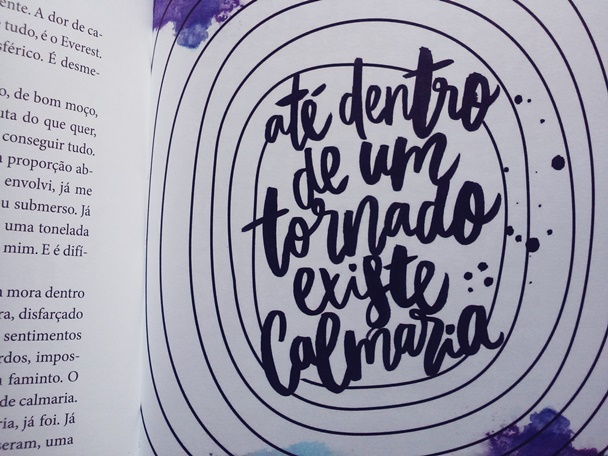 ente. A dor de ca-
tudo, é o Everest.
sférico. É desme-
o, de bom moço,
uta do que quer,
conseguir tudo.
a proporção ab-
envolvi, já me
u submerso. Já
uma tonelada
mim. E é difí-
mora dentro
ra, disfarçado
sentimentos
rdos, impos-
faminto. O
de calmaria.
ria, já foi. Já
seram, uma
até dentro
de um
tornado
existe
Calmaria